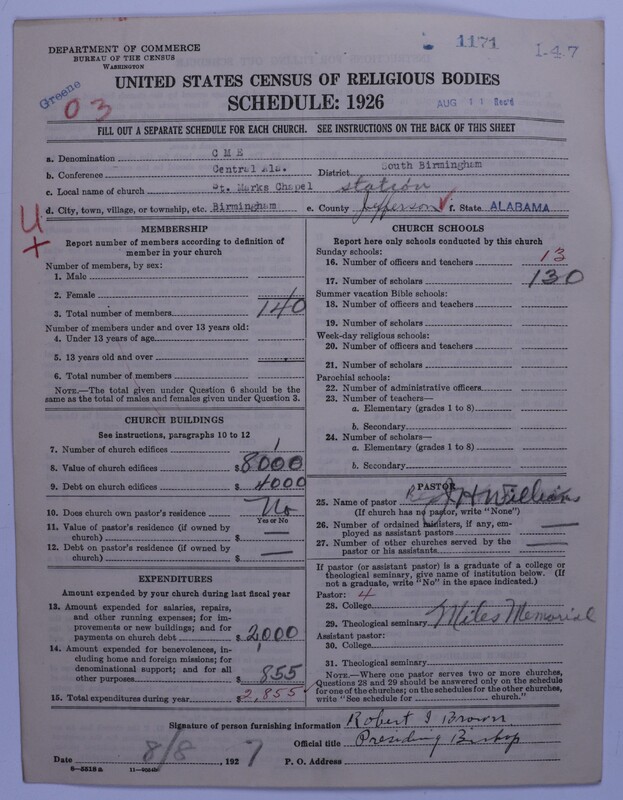 1171
I-47
DEPARTMENT OF COMMERCE
BUREAU OF THE CENSUS
WASHINGTON
Greene
03
UNITED STATES CENSUS OF RELIGIOUS BODIES
SCHEDULE: 1926
AUG 11 Rec'd
FILL OUT A SEPARATE SCHEDULE FOR EACH CHURCH. SEE INSTRUCTIONS ON THE BACK OF THIS SHEET
a. Denomination C M E
b. Conference Central Ala. District South Birmingham
c. Local name of church St. Marks Chapel station
d. City, town, village, or township, etc. Birmingham e. County Jefferson f. State ALABAMA
MEMBERSHIP
Report number of members according to definition of
member in your church
Number of members, by sex:
1. Male
2. Female
3. Total number of members 140
Number of members under and over 13 years old:
4. Under 13 years of age
5. 13 years old and over
6. Total number of members
NOTE.—The total given under Question 6 should be the
same as the total of males and females given under Question 3.
CHURCH BUILDINGS
See instructions, paragraphs 10 to 12
7. Number of church edifices 1
8. Value of church edifices $8000
9. Debt on church edifices $4000
10. Does church own pastor's residence No
Yes or No
11. Value of pastor's residence (if owned by
church) $ —
12. Debt on pastor's residence (if owned by
church) $ —
EXPENDITURES
Amount expended by your church during last fiscal year
13. Amount expended for salaries, repairs,
and other running expenses; for im-
provements or new buildings; and for
payments on church debt $2,000
14. Amount expended for benevolences, in-
cluding home and foreign missions; for
denominational support; and for all
other purposes $855
15. Total expenditures during year $2,855
CHURCH SCHOOLS
Report here only schools conducted by this church
Sunday schools:
16. Number of officers and teachers 13
17. Number of scholars 130
Summer vacation Bible schools:
18. Number of officers and teachers
19. Number of scholars
Week-day religious schools:
20. Number of officers and teachers
21. Number of scholars
Parochial schools:
22. Number of administrative officers
23. Number of teachers—
a. Elementary (grades 1 to 8)
b. Secondary
24. Number of scholars—
a. Elementary (grades 1 to 8)
b. Secondary
PASTOR
25. Name of pastor J H Williams
(If church has no pastor, write "None")
26. Number of ordained ministers, if any, em-
ployed as assistant pastors —
27. Number of other churches served by the
pastor or his assistants —
If pastor (or assistant pastor) is a graduate of a college or
theological seminary, give name of institution below. (If
not a graduate, write "No" in the space indicated.)
Pastor: 4
28. College
29. Theological seminary Miles Memorial
Assistant pastor:
30. College
31. Theological seminary
NOTE.—Where one pastor serves two or more churches,
Questions 28 and 29 should be answered only on the schedule
for one of the churches; on the schedules for the other churches,
write "See schedule for church."
Signature of person furnishing information Robert I Brown
Official title Presiding Bishop
Date 8/8, 1927 P. O. Address